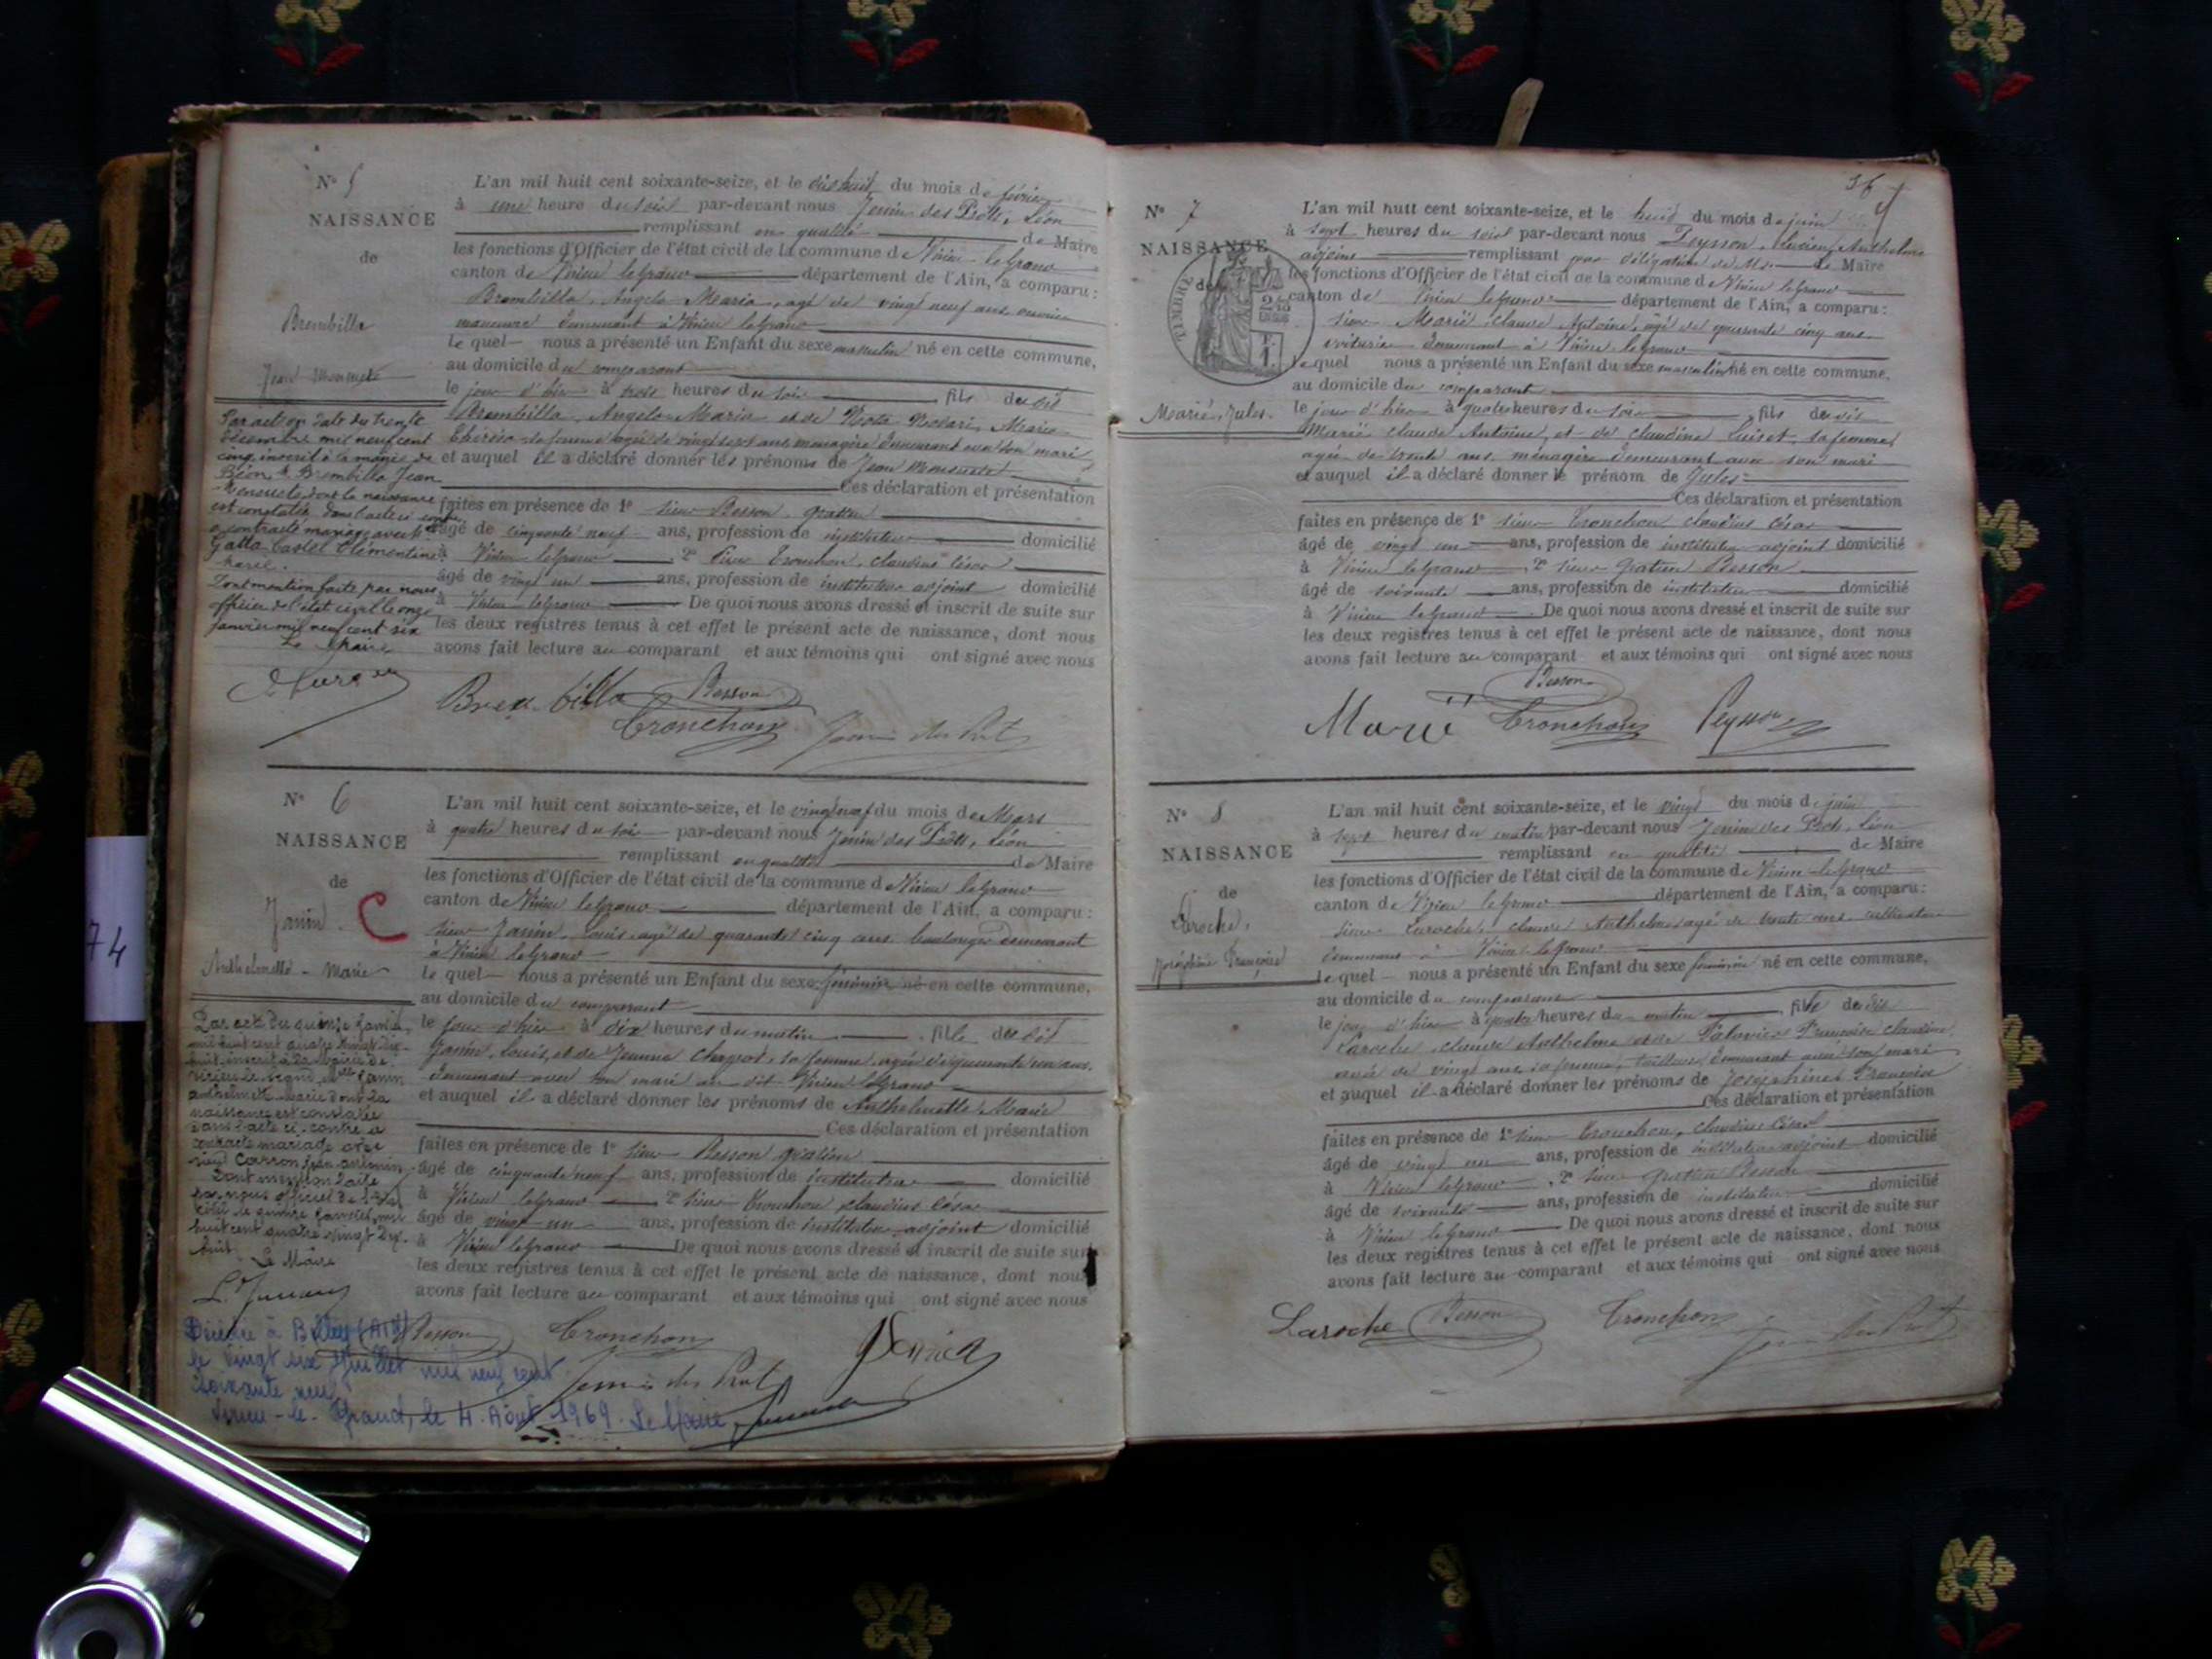 N° 5
NAISSANCE
de
Brembilla
Jean
L'an mil huit cent soixante-seize, et le dix huit du mois de février
à une heure du soir par-devant nous Jenin des Prott, Léon
remplissant en qualité de Maire
les fonctions d'Officier de l'état civil de la commune de Virieu le grand
canton de Virieu le grand département de l'Ain, a comparu :
Brembilla, Angelo Maria, agé de vingt neuf ans, ouvrier
manœuvre demeurant à Virieu le grand
Le quel nous a présenté un Enfant du sexe masculin né en cette commune,
au domicile du comparant
le jour d'hier à trois heures du soir fils du dit
Brembilla, Angelo Maria et de Marie
sa femme agée de vingt sept ans ménagère demeurant avec son mari
et auquel il a déclaré donner les prénoms de Jean
Ces déclaration et présentation
faites en présence de 1° sieur Besson, gratien
âgé de cinquante neuf ans, profession de instituteur domicilié
à Virieu le grand 2° sieur Tronchon, claudius César
âgé de vingt un ans, profession de instituteur adjoint domicilié
à Virieu le grand De quoi nous avons dressé et inscrit de suite sur
les deux registres tenus à cet effet le présent acte de naissance, dont nous
avons fait lecture au comparant et aux témoins qui ont signé avec nous
Par acte en date du trente
décembre mil neuf cent
cinq, inscrit à la mairie de
Béon, Brembilla Jean
dont la naissance
est constatée dans l'acte ci contre
a contracté mariage avec
Gallo Castel Clémentine
Dont mention faite par nous
officier de l'état civil le onze
janvier mil neuf cent six
Le Maire
Brembilla Besson
Tronchon Jenin des Prots
N° 6
NAISSANCE
de
Janin. C
Anthelmette - Marie
L'an mil huit cent soixante-seize, et le vingt neuf du mois de Mars
à quatre heures du soir par-devant nous Jenin des Prott, Léon
remplissant en qualité de Maire
les fonctions d'Officier de l'état civil de la commune de Virieu le grand
canton de Virieu le grand département de l'Ain, a comparu :
sieur Janin, Louis, agé de quarante cinq ans boulanger demeurant
à Virieu le grand
Le quel nous a présenté un Enfant du sexe féminin né en cette commune,
au domicile du comparant
le jour d'hier à dix heures du matin, fille du dit
Janin, Louis, et de Jeanne sa femme, agée de quarante un ans,
demeurant avec son mari au dit Virieu le grand
et auquel il a déclaré donner les prénoms de Anthelmette Marie
Ces déclaration et présentation
faites en présence de 1° sieur Besson gratien
âgé de cinquante neuf ans, profession de instituteur domicilié
à Virieu le grand 2° sieur Tronchon claudius césar
âgé de vingt un ans, profession de instituteur adjoint domicilié
à Virieu le grand De quoi nous avons dressé et inscrit de suite sur
les deux registres tenus à cet effet le présent acte de naissance, dont nous
avons fait lecture au comparant et aux témoins qui ont signé avec nous
Par acte du quinze janvier
mil huit cent quatre vingt dix
huit, inscrit à la mairie de
Virieu le Grand, Mlle Janin
Anthelmette Marie dont la
naissance est constatée
dans l'acte ci-contre a
contracté mariage avec
sieur Carron Jean Antonin
Dont mention faite
par nous officier de l'état
civil le quinze janvier mil
huit cent quatre vingt dix
huit.
Le Maire
Besson Tronchon Janin
Jenin des Prots
Décédée à Belley (AIN)
le vingt six Juillet mil neuf cent
soixante neuf
Virieu-le-Grand, le 4 Août 1969. Le Maire,
74
36
N° 7
NAISSANCE
de
TIMBRE
Marié, Jules.
L'an mil huit cent soixante-seize, et le huit du mois de juin
à sept heures du soir par-devant nous Peysson, Lucien, Anthelme
adjoint remplissant par délégation de Mr. le Maire
les fonctions d'Officier de l'état civil de la commune de Virieu le grand
canton de Virieu le grand département de l'Ain, a comparu :
sieur Marié, claude Antoine, agé de quarante cinq ans
voiturier demeurant à Virieu le grand
Le quel nous a présenté un Enfant du sexe masculin né en cette commune,
au domicile du comparant
le jour d'hier à quatre heures du soir, fils du dit
Marié claude Antoine, et de claudine Luiset, sa femme,
agée de trente ans, ménagère demeurant avec son mari
et auquel il a déclaré donner le prénom de Jules
Ces déclaration et présentation
faites en présence de 1° sieur Tronchon claudius césar
âgé de vingt un ans, profession de instituteur adjoint domicilié
à Virieu le grand, 2° sieur gratien Besson
âgé de soixante ans, profession de instituteur domicilié
à Virieu le grand De quoi nous avons dressé et inscrit de suite sur
les deux registres tenus à cet effet le présent acte de naissance, dont nous
avons fait lecture au comparant et aux témoins qui ont signé avec nous
Besson
Marié Tronchon Peysson
N° 8
NAISSANCE
de
Laroche,
Joséphine Françoise
L'an mil huit cent soixante-seize, et le vingt du mois de juin
à sept heures du matin par-devant nous Jenin des Prots, Léon
remplissant en qualité de Maire
les fonctions d'Officier de l'état civil de la commune de Virieu-le-grand
canton de Virieu le grand département de l'Ain, a comparu :
sieur Laroche, claude Anthelme agé de trente ans, cultivateur
demeurant à Virieu le grand
Le quel nous a présenté un Enfant du sexe féminin né en cette commune,
au domicile du comparant
le jour d'hier à quatre heures du matin, fille du dit
Laroche, claude Anthelme et de Françoise claudine
agée de vingt ans sa femme, tailleuse, demeurant avec son mari
et auquel il a déclaré donner les prénoms de Joséphine Françoise
Ces déclaration et présentation
faites en présence de 1° sieur Tronchon, claudius César
âgé de vingt un ans, profession de instituteur adjoint domicilié
à Virieu le grand, 2° sieur gratien Besson
âgé de soixante ans, profession de instituteur domicilié
à Virieu le grand De quoi nous avons dressé et inscrit de suite sur
les deux registres tenus à cet effet le présent acte de naissance, dont nous
avons fait lecture au comparant et aux témoins qui ont signé avec nous
Laroche Besson Tronchon
Jenin des Prots